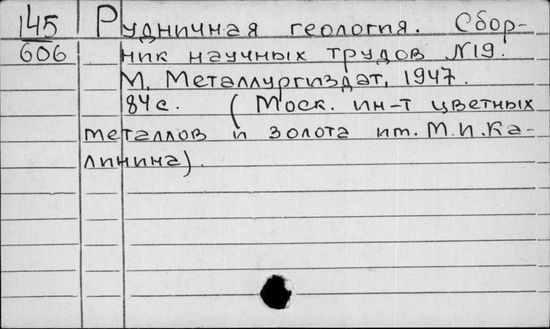 145 Рудничная геология. Сбор-
606 ник научных трудов №19.
М, Металлургиздат, 1947.
84с. (Моск. ин-т цветных
металлов и золота им. М.И.Ка-
линина).